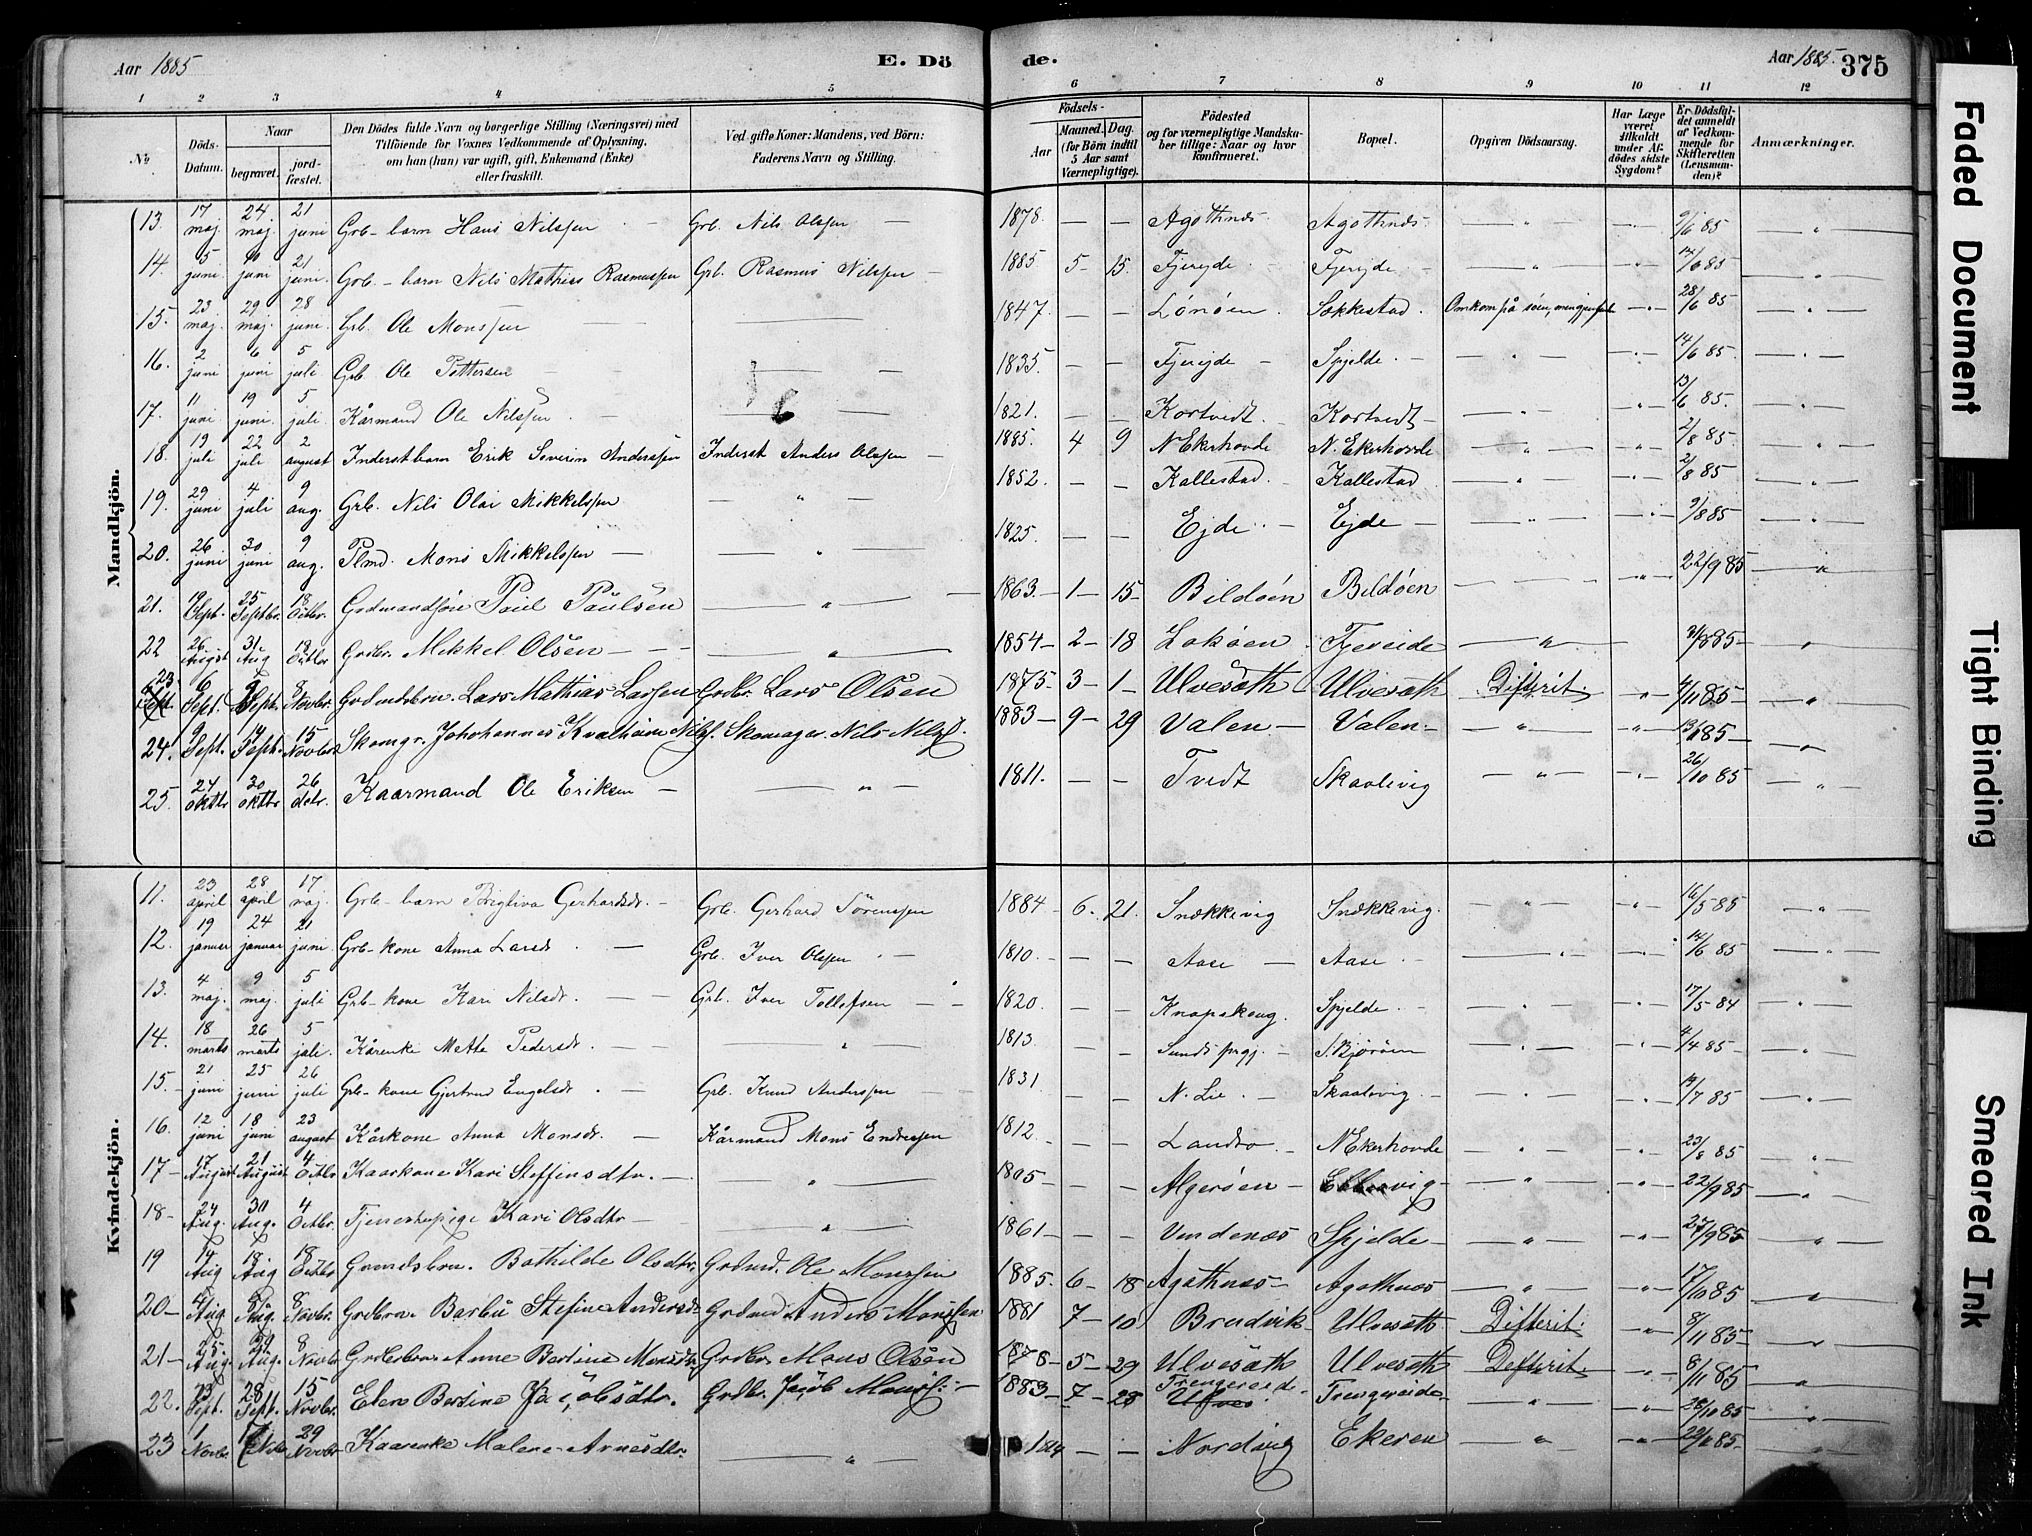 Aar 1885 E. Dö de. Aar 1885. 375
1 2 3 4 5 6 7 8 9 10 11 12
No Döds-Datum. Naar begravet. jord-fæstet. Den Dödes fulde Navn og borgerlige Stilling (Næringsvei) med Tilföiende for Voxnes Vedkommende af Oplysning, om han (hun) var ugift, gift, Enkemand (Enke) eller fraskilt. Ved gifte Koner: Mandens, ved Börn: Faderens Navn og Stilling. Födsels- Aar Maaned. Dag. (for Börn indtil 5 Aar samt Værnepligtige). Födested og for værnepligtige Mandskaber tillige: Naar og hvor konfirmeret. Bopæl. Opgiven Dödsaarsag. Har Læge været tilkaldt under Afdödes sidste Sygdom? Er Dödsfaldet anmeldt af Vedkommende for Skifteretten (Lensmanden)? Anmærkninger.
Mandkjön.
13. 17 maj. 24 maj. 21 juni Grb-barn Hans Nilssen Grb. Nils Olssen 1878 — — Agothnæs Agothnæs — " — 9/6 85 "
14. 5 juni 10 juni 21 juni. Grb-barn Nils Mathias Rasmussen Grb. Rasmus Nilssen 1885 5 15. Fjerejde Fjerejde — " — 14/6 85 "
15. 23 maj. 29 maj. 28 juni. Grb. Ole Monssen — 1847. — — Lønøen Søkkestad. Omkom på søen, 28/6 85 "
16. 2 juni 6 juni 5 juli Grb. Ole Pettersen — 1835. — — Fjerejde Spjelde — " — 14/6 85 "
17. 11 juni 19 juni. 5 juli. Kårmand Ole Nilssen — 1821. — — Kortvedt Kortvedt — " — 13/6 85. "
18. 19 juli 22 juli 2 august Inderstbarn Erik Severin Anderssen Inderst Anders Olssen 1885. 4 9 N. Ekerhovde N. Ekerhovde — " — 2/8 85. "
19. 29 juni 4 juli 9 aug. Grb. Nils Olai Mikkelssen — " — 1852. — — Kallestad. Kallestad — " — 2/8 85 "
20. 26 juni 30 juni 9 aug. Plmd. Mons Mikkelssen — " — 1825. — — Ejde Ejde — " — 9/8 85 "
21. 19 Sept. 25 Septbr. 18 Octbr. Gadmandssön Paul Paulsen — " — 1863 1 15 Bildöen Bildöen — " 22/9 85 "
22 26 August 31 Aug 18 Octbr Grdbr. Mikkel Olsen — " — 1854 2 18 Lokøen Fjereide — " — 31/8 85 "
23 6 Sept. 9 Sept. 8 Novbr. Grdmdsbrn. Lars Mathias Larsen Grdbr. Lars Olsen 1875 3 1 Ulvesæth Ulvesæth Difterit. " 4/11 85 "
24. 9 Sept. 14 Sept. 15 Novbr Skomgr. Johohannes Kvalheim Nilss. Skomager. Nils Nilss. 1883 9 29 Valen Valen — " — " "
25. 24 oktbr 30 oktbr 26 dcbr. Kaarmand Ole Eriksen — " — 1811. — — Tvedt Skaalevig — " — 26/10 85 "
Kvindekjön.
11. 23 april 28 april 17 maj. Grb-barn Brigtiva Gerhardsdr. Grb. Gerhard Sörenssen 1884 6. 21. Snækkevig Snækkevig. — " — 16/5 85 "
12. 19 januar 24 januar 21 juni. Grb-kone Anna Larsdr. Grb. Iver Olssen 1810 — — Aase Aase — " — 14/6 85 "
13. 4 maj. 9 maj. 5 juli Grb-kone Kari Nilsdr. Grb. Iver Tollefsen 1820 — — Knapskoug. Spjelde — " — 17/5 84 "
14. 18 marts 26 marts 5 juli. Kårenke Mette Pedersdr. — " — 1813 — — Sunds prgj. S. Björöen — " — 4/4 85 "
15. 21 juni 25 juni 26 juli Grb-kone Gjertrud Engelsdr Grb. Knud Anderssen 1831 — — N. Lie Skaalevig — " — 19/7 85 "
16. 12 juni 18 juni 23 august Kårkone Anna Monsdr. Kårmand Mons Endressen 1812 — — Landro N. Ekerhovde — " — 23/8 85 "
17 17 August 21 August 4 Octbr Kaarkone Kari Steffensdtr. — " — 1805 — — Algeröen — " — 22/9 85 "
18 24 Aug. 30 Aug. 4 Octbr. Tjenestepige Kari Olsdtr — " — 1861 — — Vindenæs Spjelde — " — 27/9 85 "
19 14 Aug 18 Aug 18 Octbr Grmdsbrn. Bothilde Olsdtr. Grdmd. Ole Monssen 1885. 6 18 Agathnæs Agathnæs — " — 17/10 85 "
20 4 Aug. Aug. 8 Novbr. Grdbrn. Barbu Stefine Andersdr Grdmd Anders Monssen 1881 7 10 Brudvik Ulvesæth Difterit. " 8/11 85 "
21 25 Aug. 29 Aug. 8 Novbr Anne Bertine Monsdtr Grdbr Mons Olsen 1878 5 29 Ulvesæth Ulvesæth Defterit. " 8/11 85 "
22. 23 Sept. 28 Sept. 15 Novbr. Elen Bertine Jacobsdtr. Grdbr. Jacob Monss. 1883 7 28 Trengereide Trengereide — " — 28/10 85 "
23 1 Novbr. 7 Nvbr 29 Novbr Kaarenke Malene Arnesdtr. — " — — — Nordvig Ekeren — " — "
Faded Document
Tight Binding
Smeared Ink